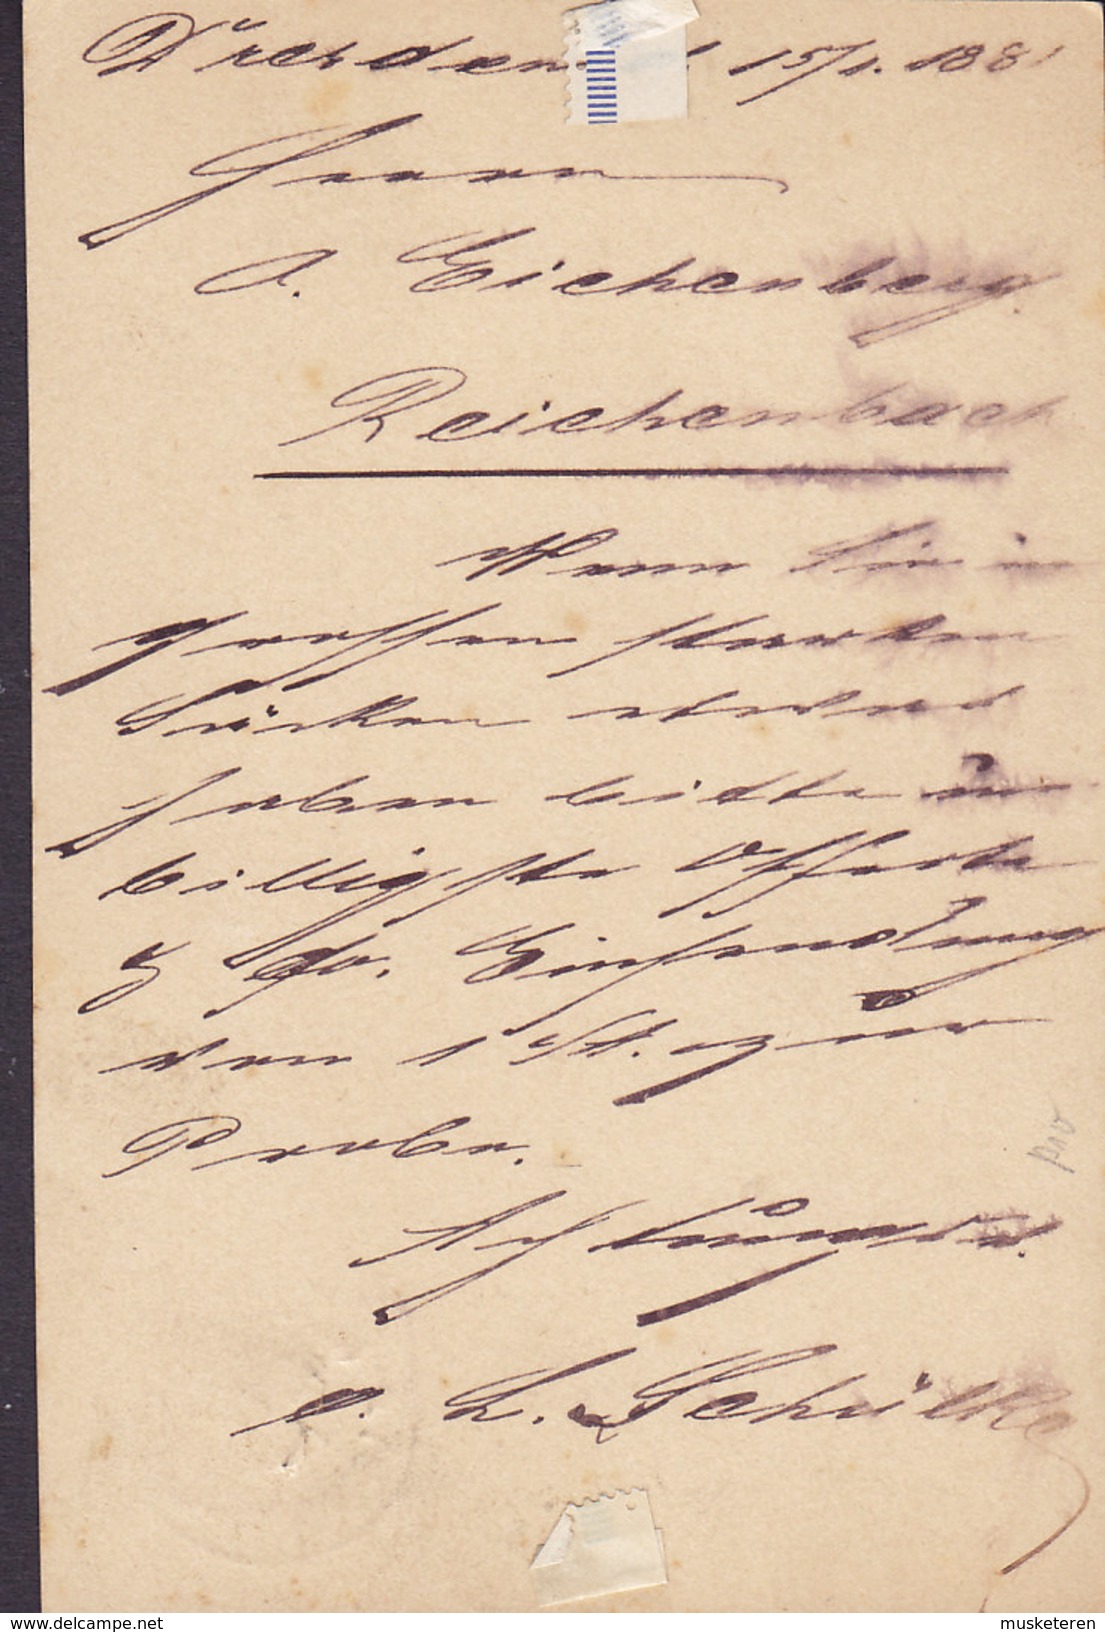 Dresden 15/1. 1881
Herrn
A. Eichenberg.
Reichenbach
Wenn Sie in
grossen starken
Säcken etwas
haben bitte um
billigste Offerte
& Einsendung
von 1 St. zur
Probe.
Achtungsv.
L. Schülke
prv
www.delcampe.net
musketeren